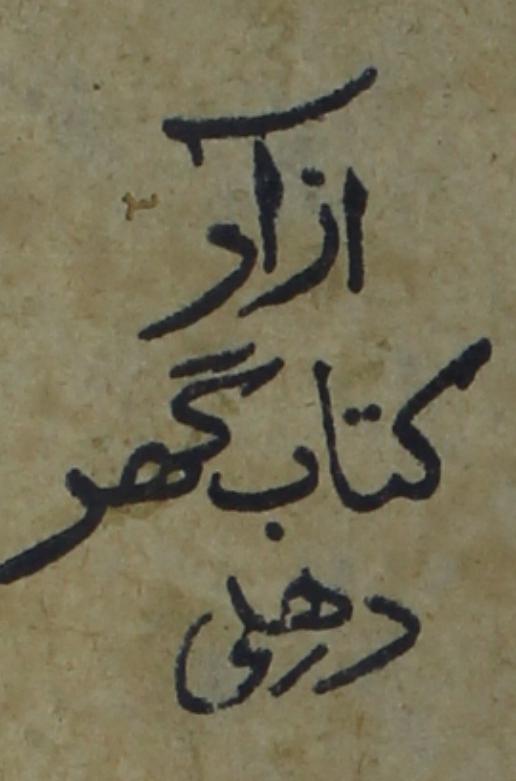 ازاد
کتاب گھر
دھلی